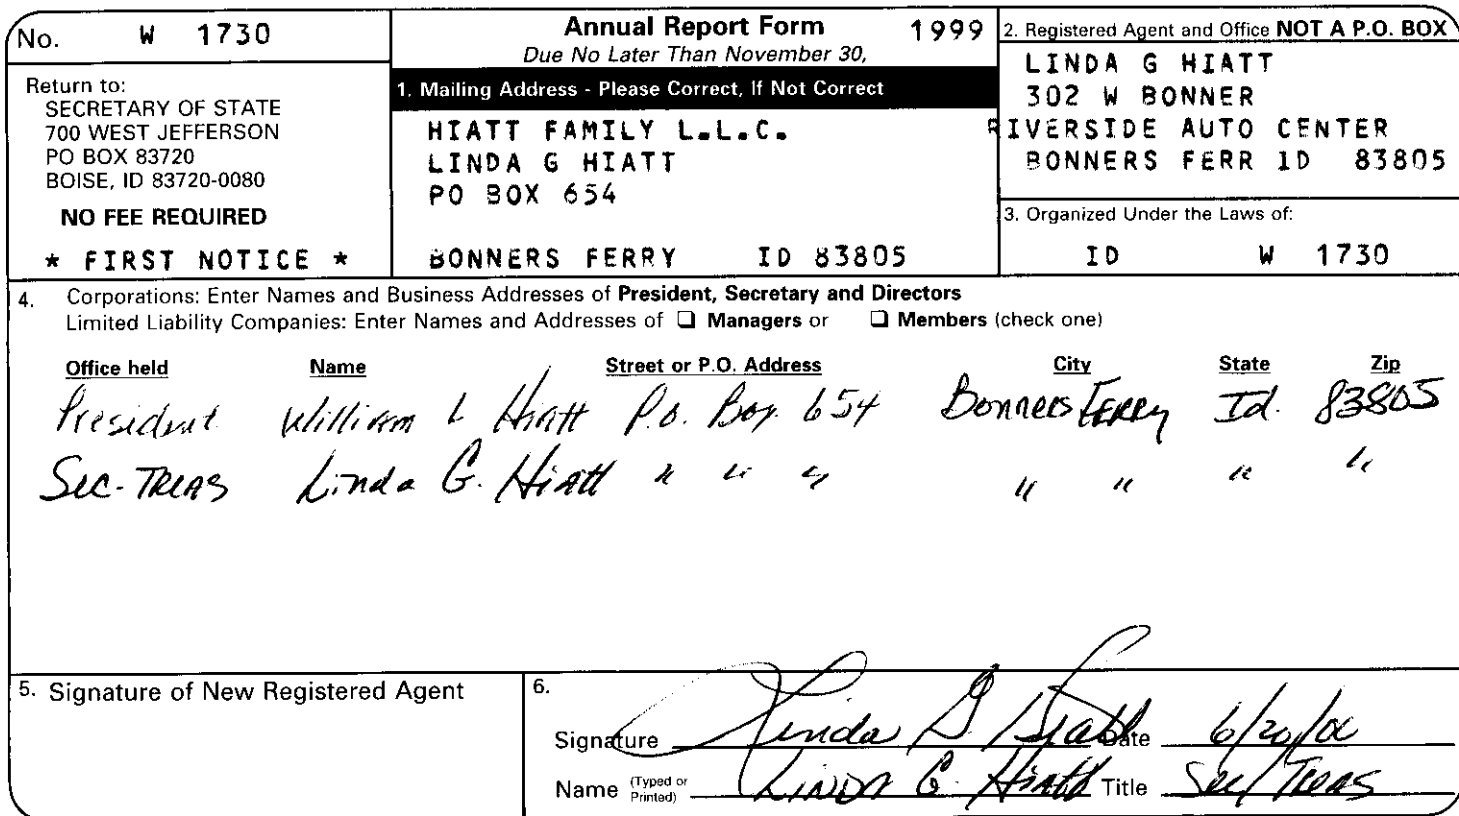 No. W 1730
Return to:
SECRETARY OF STATE
700 WEST JEFFERSON
PO BOX 83720
BOISE, ID 83720-0080
NO FEE REQUIRED
* FIRST NOTICE *
Annual Report Form 1999
Due No Later Than November 30,
1. Mailing Address - Please Correct, If Not Correct
HIATT FAMILY L.L.C.
LINDA G HIATT
PO BOX 654
BONNERS FERRY ID 83805
2. Registered Agent and Office NOT A P.O. BOX
LINDA G HIATT
302 W BONNER
RIVERSIDE AUTO CENTER
BONNERS FERR ID 83805
3. Organized Under the Laws of:
ID W 1730
4. Corporations: Enter Names and Business Addresses of President, Secretary and Directors
Limited Liability Companies: Enter Names and Addresses of ☐ Managers or ☐ Members (check one)
Office held Name Street or P.O. Address City State Zip
President William L Hiatt P.O. Box 654 Bonners Ferry Id. 83805
Sec-Treas Linda G. Hiatt " " " " " " "
5. Signature of New Registered Agent
6.
Signature Linda G. Hiatt Date 6/20/00
Name (Typed or Printed) Linda G. Hiatt Title Sec/Treas